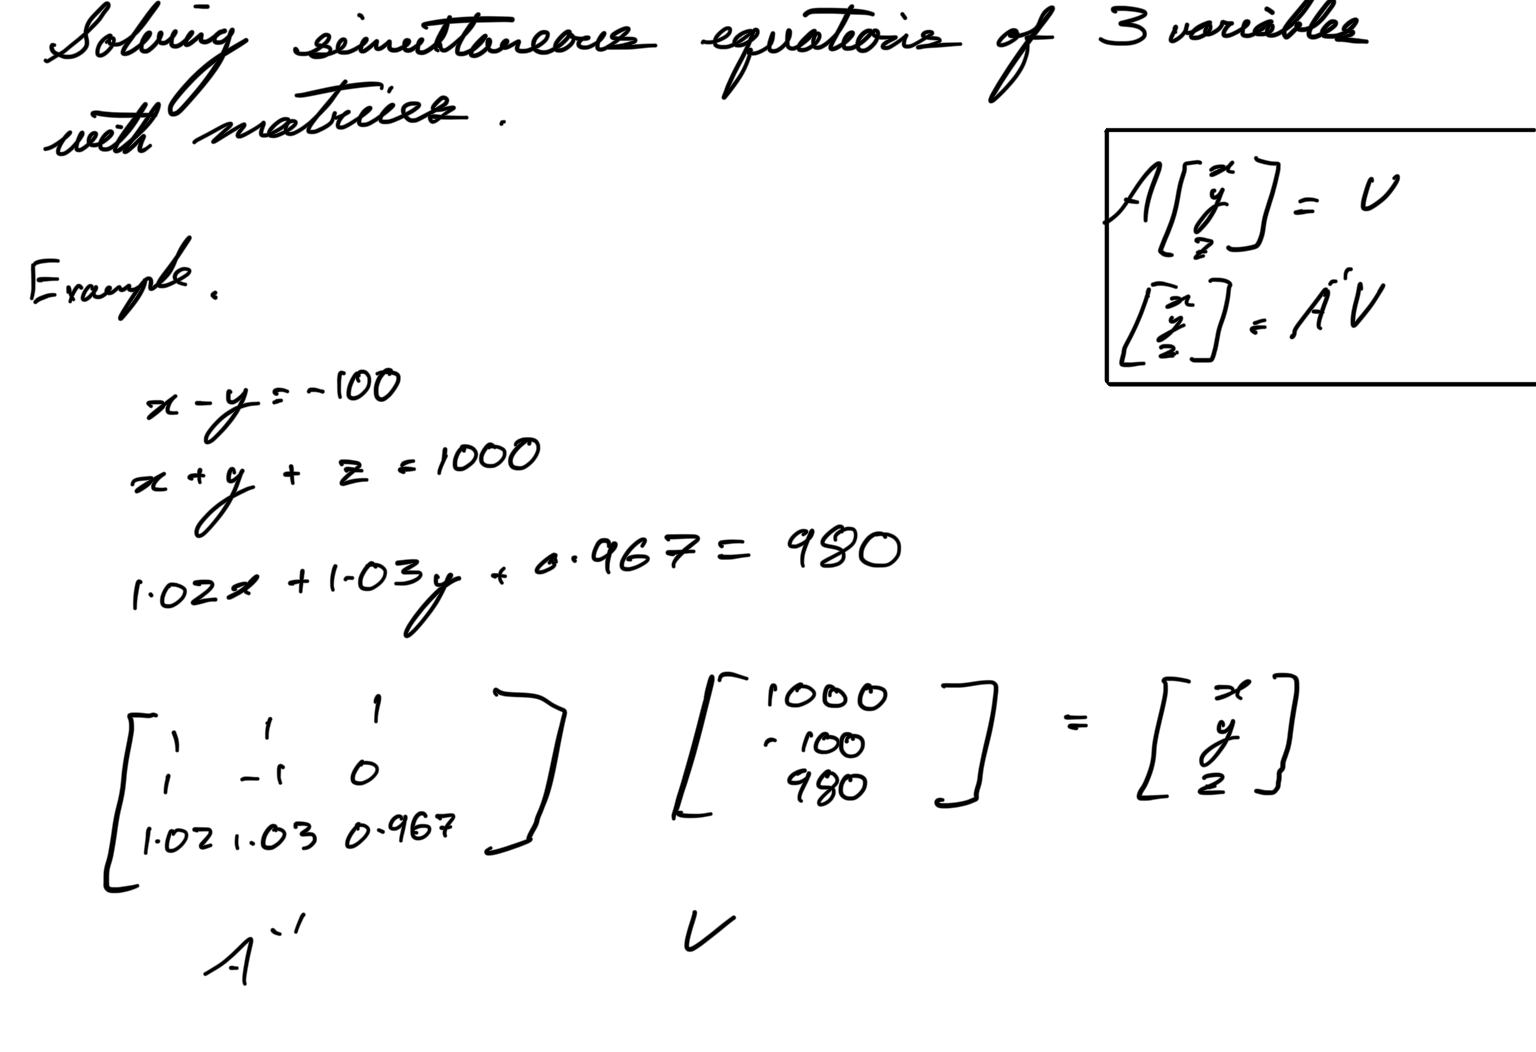 Solving simultaneous equations of 3 variables
with matrices.
A [x y z] = V
[x y z] = A⁻¹V
Example.
x - y = -100
x + y + z = 1000
1.02x + 1.03y + 0.967 = 980
[1 1 1
1 -1 0
1.02 1.03 0.967]
[1000
-100
980]
= [x
y
z]
A⁻¹
V